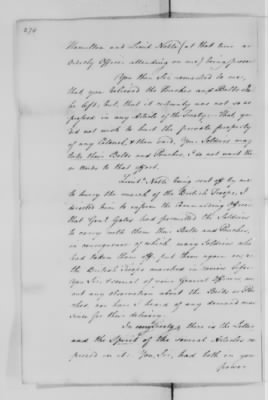 Hamilton and Lieut Noble (at that time an
Orderly Officer attending on me) being present
You then Sir remarked to me,
that you believed the Pouches and Belts
left; but, that it certainly was not so ex
pressed in any Article of the Treaty. That you
did not wish to hurt the private property
of any Colonel, & then said, Yes, Soldiers may
take their Belts and Pouches, I do not want them
or Words to that effect.
Lieut. Noble being sent off by me
to hurry the march of the British Troops, I
directed him to inform the Commanding Officer
that Genl. Gates had permitted the Soldiers
to carry with them their Belts and Pouches,
in consequence of which many Soldiers who
had taken them off, put them upon
the British Troops marched in review before
You Sir, & several of your General Officers
out any observation about the Belts or Pou
ches, nor have I heard of any demand
since for their delivery.
In there is the Letter
and the Spirit of the several Articles ex
pressed in it: You Sir, had both in your
power